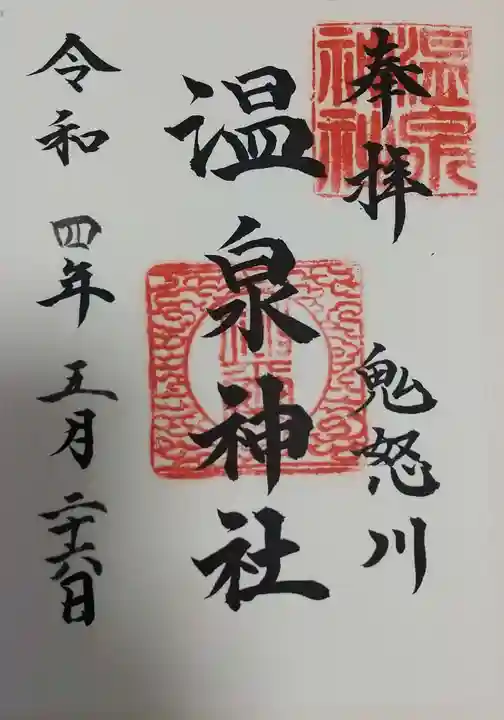 奉拝
鬼怒川
温泉神社
令和 四年 五月 二十六日
温泉
神社